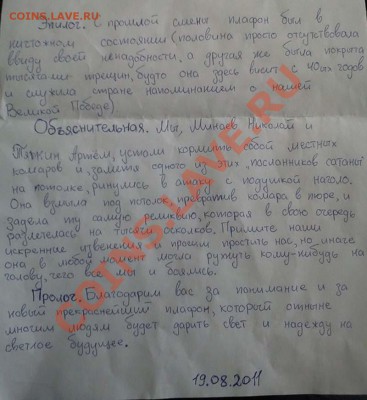 Эпилог. С прошлой смены плафон был в
ничтожном состоянии (половина просто отсутствовала
ввиду своей ненадобности, а другая же была покрыта
тысячами трещин, будто она здесь висит с 40ых годов
и служила стране напоминанием о нашей
Великой Победе)
Объяснительная. Мы, Минаев Николай и
Артём, устали кормить собой местных
комаров и, заметя одного из этих "посланников сатаны"
на потолке, ринулись в атаку с подушкой наголо.
Она взмыла под потолок, превратив комара в пюре, и
задела ту самую реликвию, которая в свою очередь
разлетелась на тысячи осколков. Примите наши
искренние извенения и прошу простить нас, но иначе
она в любой момент могла рухнуть кому-нибудь на
голову, чего все мы и боялись.
Пролог. Благодарим вас за понимание и за
новый прекраснейший плафон, который отныне
многим людям будет дарить свет и надежду на
светлое будущее.
19.08.2011
COINS.LAVE.RU
COINS.LAVE.RU